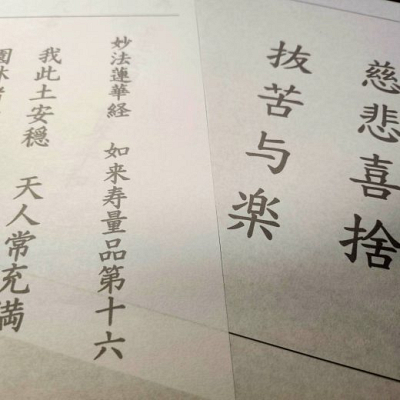 慈悲喜捨
抜苦与楽
妙法蓮華経 如来寿量品第十六
我此土安穏 天人常充満
園林